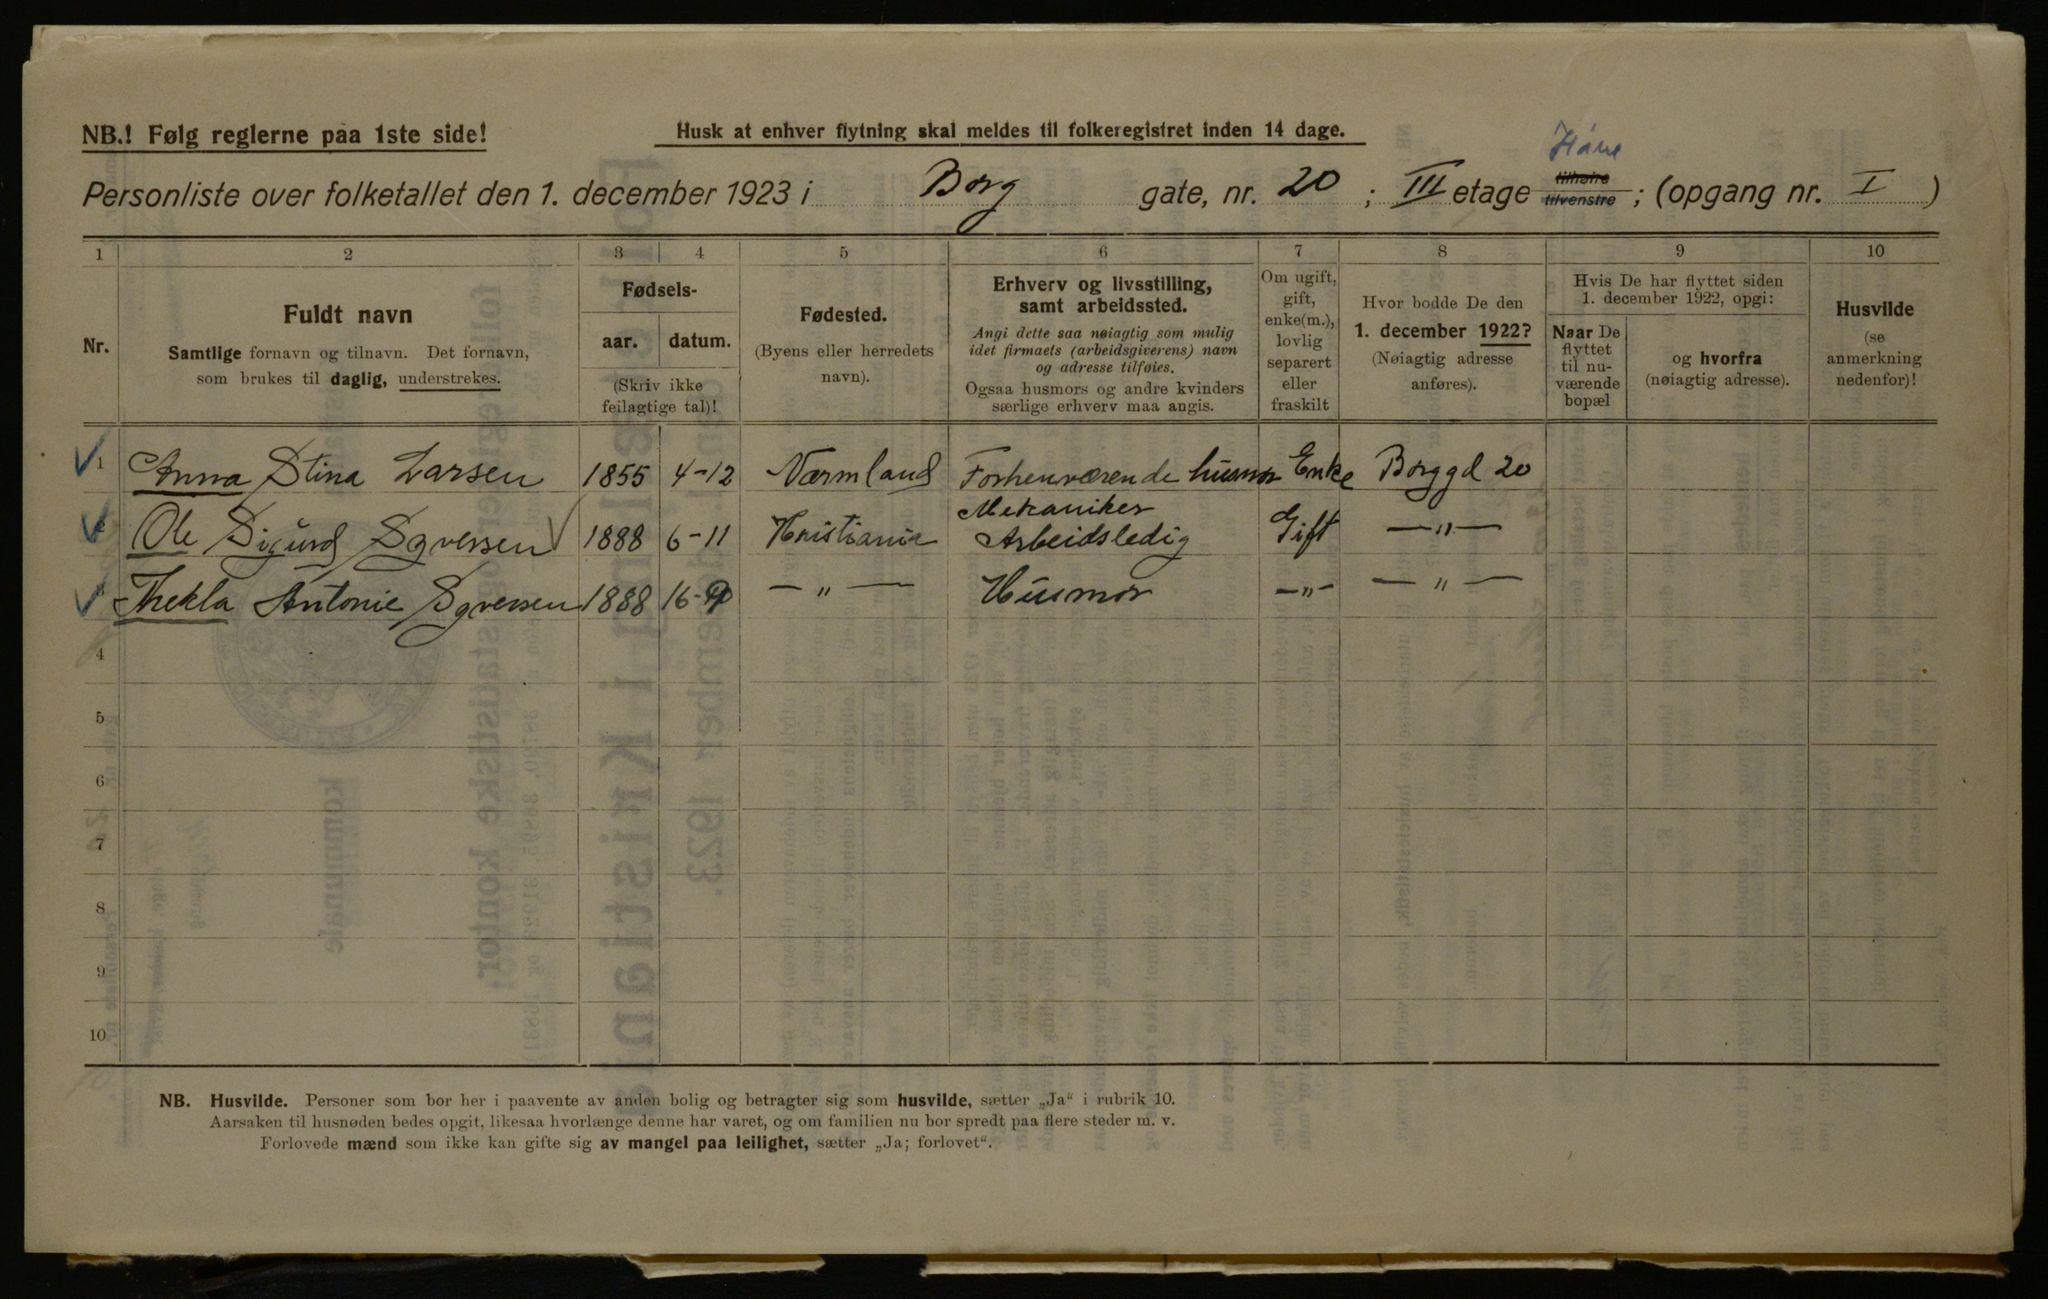 NB.! Følg reglerne paa 1ste side!
Husk at enhver flytning skal meldes til folkeregistret inden 14 dage.
Personliste over folketallet den 1. december 1923 i Borg gate, nr. 20 ; III etage tilhøire tilvenstre ; (opgang nr. I )
1 2 3 4 5 6 7 8 9 10
Nr.
Fuldt navn
Samtlige fornavn og tilnavn. Det fornavn,
som brukes til daglig, understrekes.
Fødsels-
aar. datum.
(Skriv ikke
feilagtige tal)!
Fødested.
(Byens eller herredets
navn).
Erhverv og livsstilling,
samt arbeidssted.
Angi dette saa nøiagtig som mulig
idet firmaets (arbeidsgiverens) navn
og adresse tilføies.
Ogsaa husmors og andre kvinders
særlige erhverv maa angis.
Om ugift,
gift,
enke(m.),
lovlig
separert
eller
fraskilt
Hvor bodde De den
1. december 1922?
(Nøiagtig adresse
anføres).
Hvis De har flyttet siden
1. december 1922, opgi:
Naar De
flyttet
til nu-
værende
bopæl
og hvorfra
(nøiagtig adresse).
Husvilde
(se
anmerkning
nedenfor)!
1 Anna Stina Larsen 1855 4-12 Værmland Forhenværende husmor Enke Borggd 20
2 Ole Sigurd Syversen 1888 6-11 Kristiania Mekaniker Gift —"—
Arbeidsledig
3 Thekla Antonie Syversen 1888 16-9 —"— Husmor —"— —"—
4
5
6
7
8
9
10
NB. Husvilde. Personer som bor her i paavente av anden bolig og betragter sig som husvilde, sætter „Ja“ i rubrik 10.
Aarsaken til husnøden bedes opgit, likesaa hvorlænge denne har varet, og om familien nu bor spredt paa flere steder m. v.
Forlovede mænd som ikke kan gifte sig av mangel paa leilighet, sætter „Ja; forlovet“.